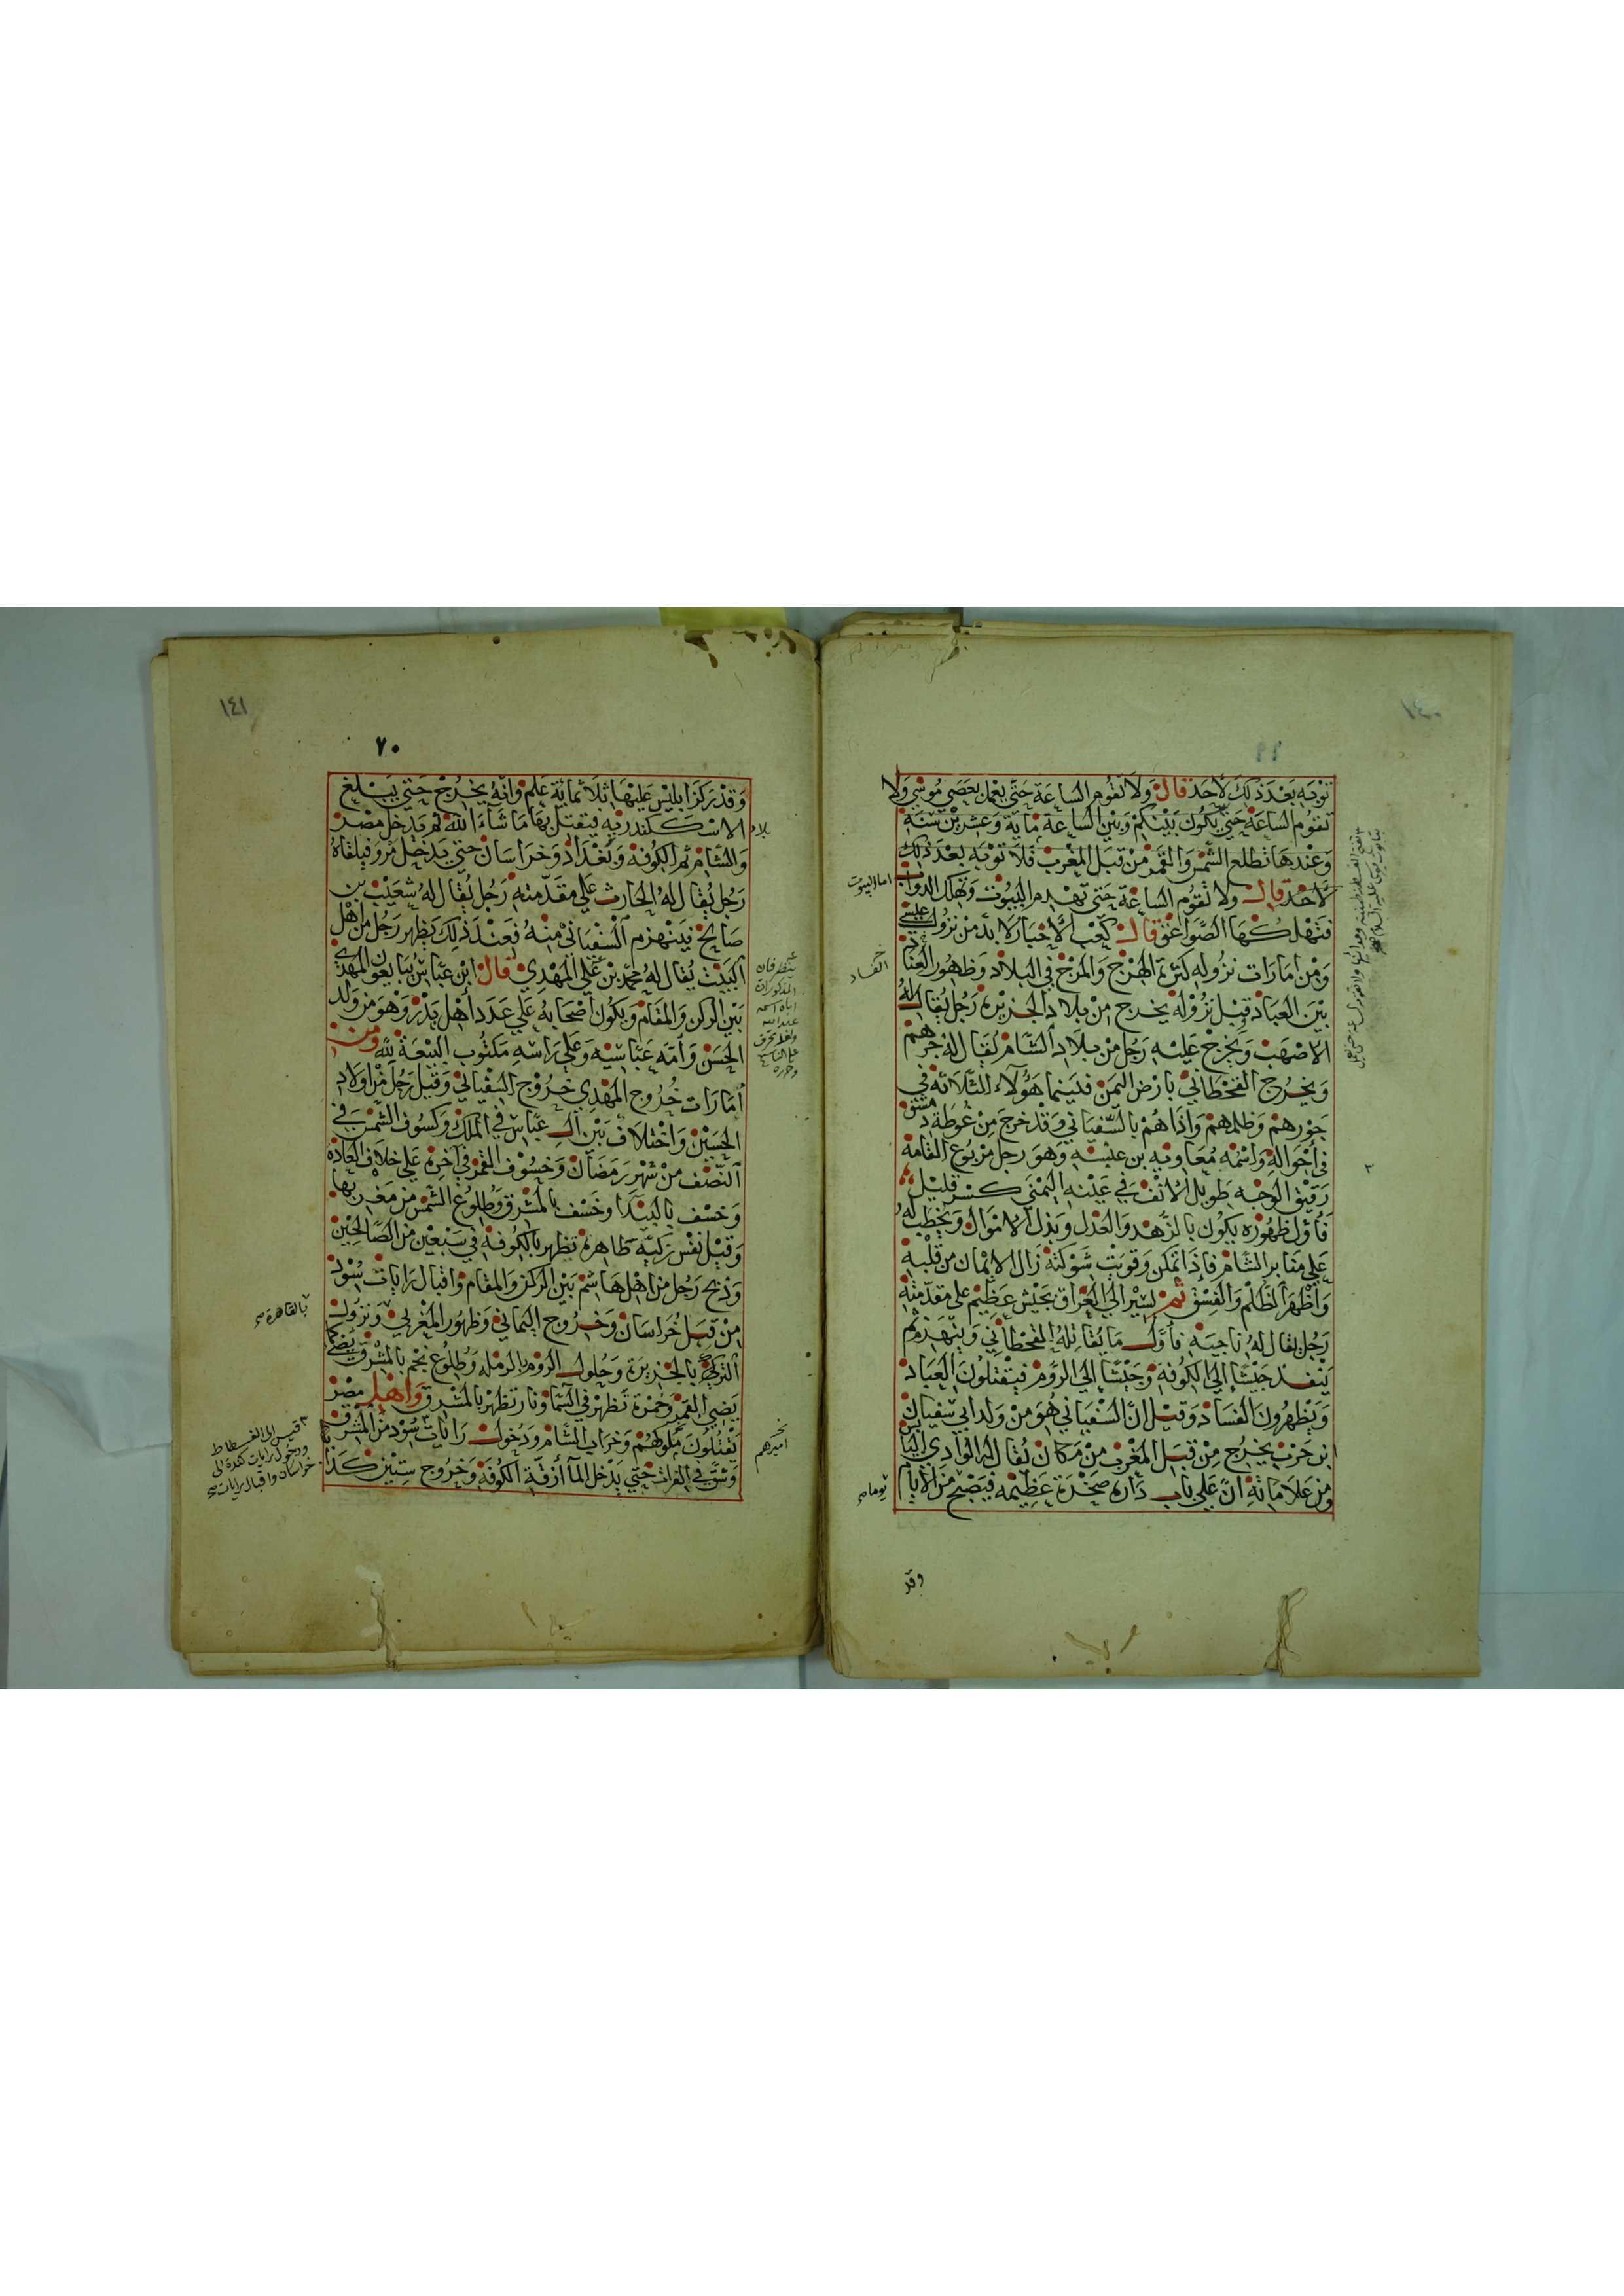 ١٤٠
توبه بعد ذلك لاحد قال ولا تقوم الساعة حتى يعمل بعصي موسى ولا
تقوم الساعة حتى يكون بينكم وبين الساعة ماية وعشرين سنة
وعندها تطلع الشمس والقمر من قبل المغرب فلا توبه بعد ذلك
لاحد قال ولا تقوم الساعة حتى تهدم البيوت وتهلك الدواب
فتهلكها الصواعق قال كعب الاخبار لا بد من نزول عيسى
ومن امارات نزوله كثرة الهرج والمرج في البلاد وظهور العناد
بين العباد قبل نزوله يخرج من بلاد الجزيرة رجل يقال له
الاصهب ويخرج عليه رجل من بلاد الشام يقال له جرهم
ويخرج القحطاني بارض اليمن فبينما هؤلاء الثلاثة في
جورهم وظلمهم واذا هم بالسفياني وقد خرج من غوطة دمشق
في أخواله واسمه معاويه بن عنبسه وهو رجل مربوع القامة
رقيق الوجه طويل الانف في عينه اليمنى كسر قليل
فاول ظهوره يكون بالزهد والعدل وبذل الاموال ويخطب له
على منابر الشام فاذا تمكن وقويت شوكته زال الايمان من قلبه
واظهر الظلم والفسق ثم يسير الى العراق بجيش عظيم على مقدمته
رجل يقال له ناجيه فاول ما يقاتله القحطاني وينهزم ثم
ينفذ جيشا الى الكوفة وجيشا الى الروم فيقتلون العباد
ويظهرون الفساد وقيل ان السفياني هو من ولد ابي سفيان
ابن حرب يخرج من قبل المغرب من مكان يقال له الوادي اليابس
ومن علاماته ان على باب داره صخرة عظيمه فيصبح من الايام
اما البيوت
الفساد
يوما
وقد
١٤١
٧٠
وقد ركز ابليس عليها ثلاثماية علم وانه يخرج حتى يبلغ
الاسكندريه فيقتل بها ما شاء الله ثم يدخل مصر
والشام ثم الكوفة وبغداد وخراسان حتى يدخل مرو فيلقاه
رجل يقال له الحارث على مقدمته رجل يقال له شعيب بن
صالح فينهزم السفياني منه فعند ذلك يظهر رجل من اهل
البيت يقال له محمد بن علي المهدي قال ابن عباس يبايعون المهدي
بين الركن والمقام ويكون اصحابه على عدد اهل بدر وهو من ولد
الحسن وامه عباسيه وعلى راسه مكتوب البيعة لله ومن
أمارات خروج المهدي خروج السفياني وقبل رجل من اولاد
الحسين واختلاف بين ال عباس في الملك وكسوف الشمس في
النصف من شهر رمضان وخسوف القمر في اخره على خلاف العادة
وخسف بالبيدا وخسف بالمشرق وطلوع الشمس من مغربها
وقيل نفس زكية ظاهرة تظهر بالكوفة في سبعين من الصالحين
وذبح رجل من اهل هاشم بين الركن والمقام واقبال رايات سود
من قبل خراسان وخروج اليماني وظهور المغربي ونزول
الترك بالجزيرة وحلول الروم الرملة وطلوع نجم بالمشرق يضي كما
يضي القمر وحمرة تظهر في السماء ونار تظهر بالمشرق واهل مصر
يقتلون ملوكهم وخراب الشام ودخول رايات سود من المشرق
وشق في الفرات حتى يدخل الما أزقة الكوفة وخروج ستين كذابا
بلاد
بالقاهرة
اميرهم
قيس الى الفسطاط
ودخول رايات كندة الى
خراسان واقبال رايات